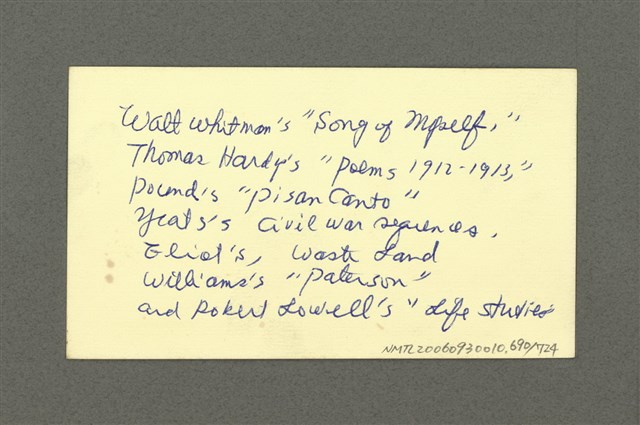 Walt Whitman's "Song of Myself,"
Thomas Hardy's "Poems 1912-1913,"
Pound's "Pisan Canto"
Yeats's Civil War sequences,
Eliot's, Waste Land
Williams's "Paterson"
and Robert Lowell's "Life Studies
NMTL20060930010.690/724